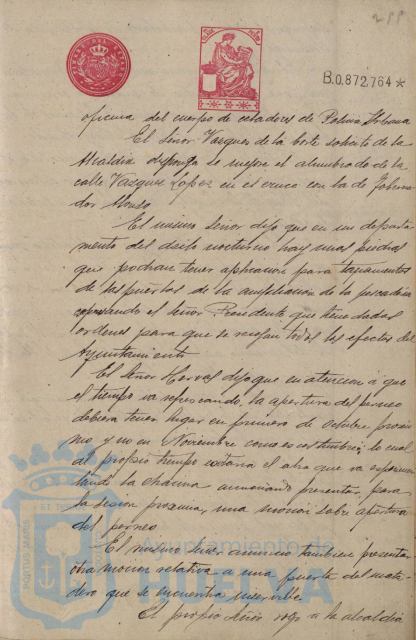 288
B.0,872,764*
oficina del cuerpo de celadores de Policia Urbana
El Señor Vazquez de la Corte solicita de la
Alcaldia disponga se mejore el alumbrado de la
calle Vazquez Lopez en el cruce con la de Joberna
dor Alonso
El mismo Señor dijo que en un departa
mento del asilo nocturno hay unas piedras
que podrian tener aplicacion para
de las puertas de la ampliacion de la pescaderia
el Señor Presidente que tiene dadas
ordenes para que se recojan todos los efectos del
Ayuntamiento
El Señor dijo que en atencion á que
el tiempo va refrescando, la apertura del porneo
debiera tener lugar en primero de octubre proxi
mo y no en Noviembre como es costumbre, lo cual
al propio tiempo el alza que va experimen
tando la chacina anunciando presentar, para
la sesion proxima, una mocion sobre apertura
del porneo
El mismo Señor anuncio tambien presentar
otra mocion relativa a una puerta del mata
dero que se encuentra inservible
El propio Señor rogo a la alcaldia
Ayuntamiento de
HUELVA